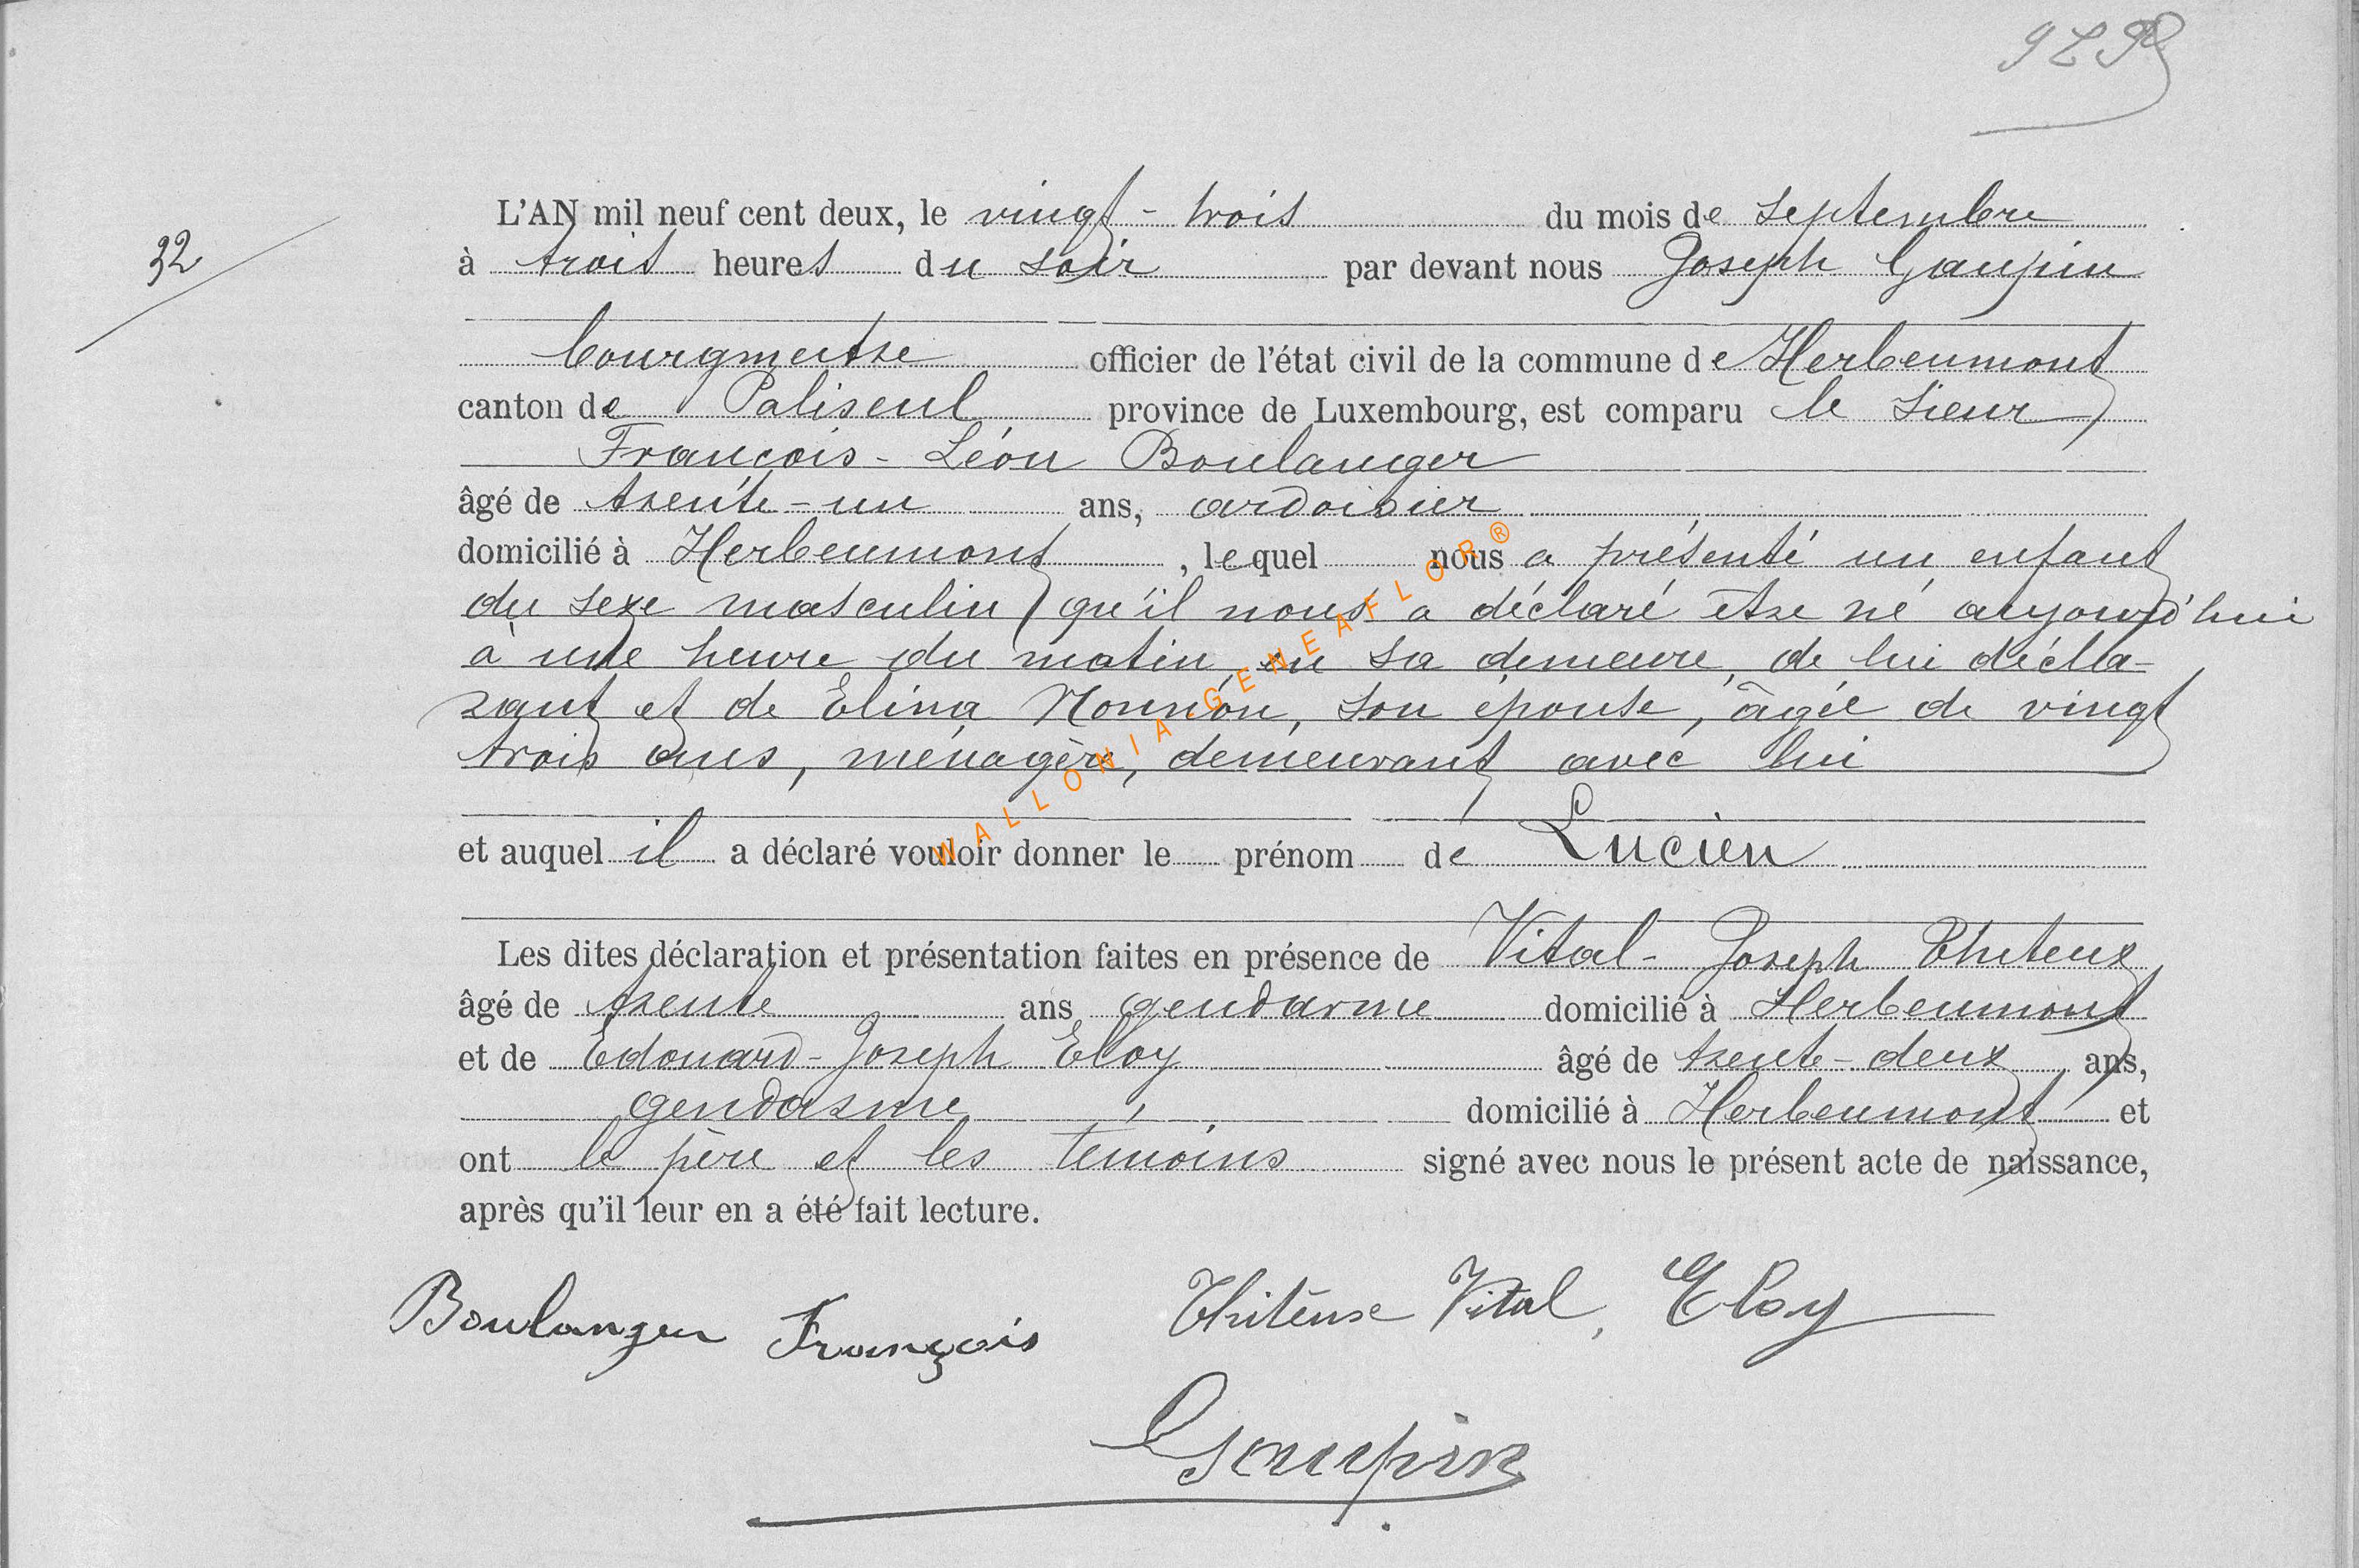 32
L'AN mil neuf cent deux, le vingt-trois du mois de septembre
à trois heures du soir par devant nous Joseph Gaupin
bourgmestre officier de l'état civil de la commune de Herbeumont
canton de Paliseul province de Luxembourg, est comparu le sieur
François-Léon Boulanger
âgé de trente-un ans, ardoisier
domicilié à Herbeumont, lequel nous a présenté un enfant
du sexe masculin qu'il nous a déclaré être né aujourd'hui
à une heure du matin, en sa demeure, de lui décla-
rant et de Elina Monnon, son épouse, âgée de vingt
trois ans, ménagère, demeurant avec lui
et auquel il a déclaré vouloir donner le prénom de Lucien
Les dites déclaration et présentation faites en présence de Vital-Joseph Thiteux
âgé de trente ans gendarme domicilié à Herbeumont
et de Edouard-Joseph Eloy âgé de trente-deux ans,
gendarme, domicilié à Herbeumont et
ont le père et les témoins signé avec nous le présent acte de naissance,
après qu'il leur en a été fait lecture.
Boulanger François Thiteux Vital, Eloy
Gaupin
WALLONIA-GENEAFLOR®